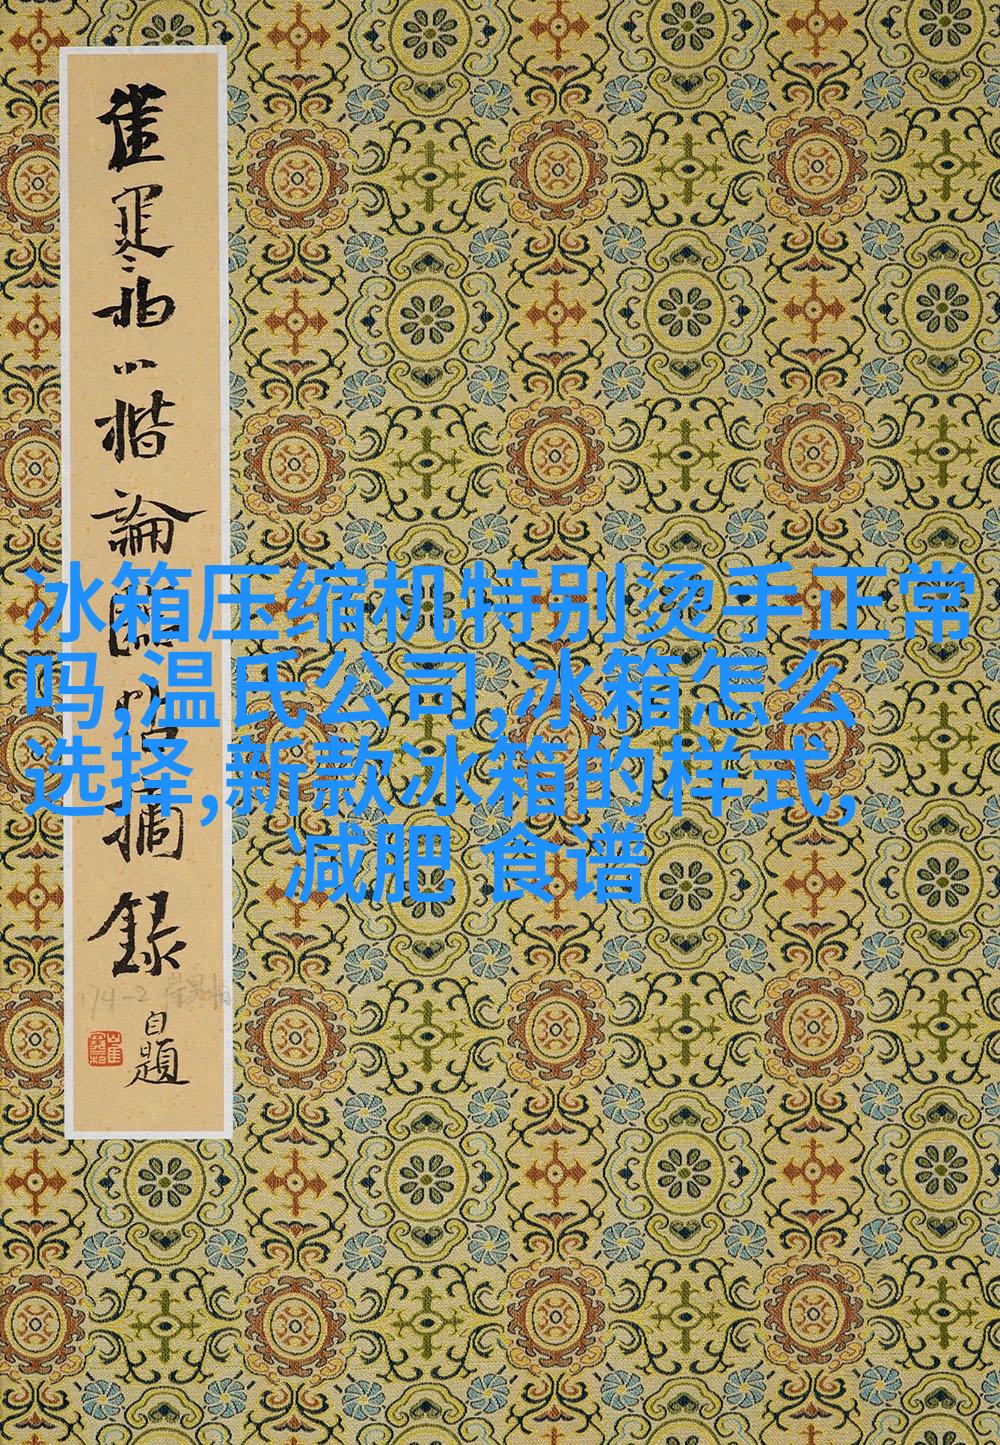 崔 小楷論 摘錄
自題
冰箱压缩机特别烫手正常
吗,温氏公司,冰箱怎么
选择,新款冰箱的样式,
减肥 食谱